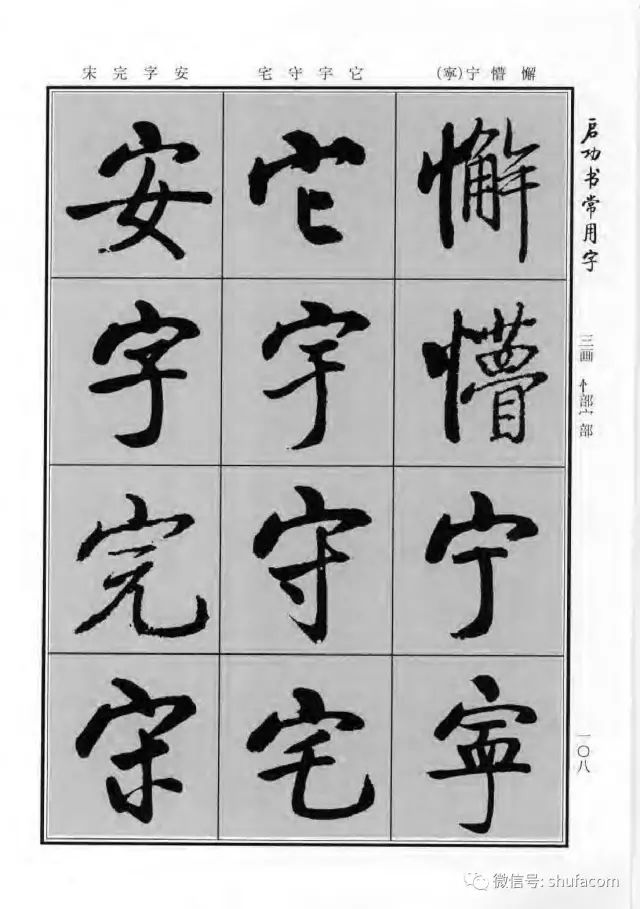 懈懵宁(寧)
它宇守宅
安字完宋
启功书常用字
三画 忄部宀部
一〇八
懈懵宁寧
它宇守宅
安字完宋
微信号: shufacom